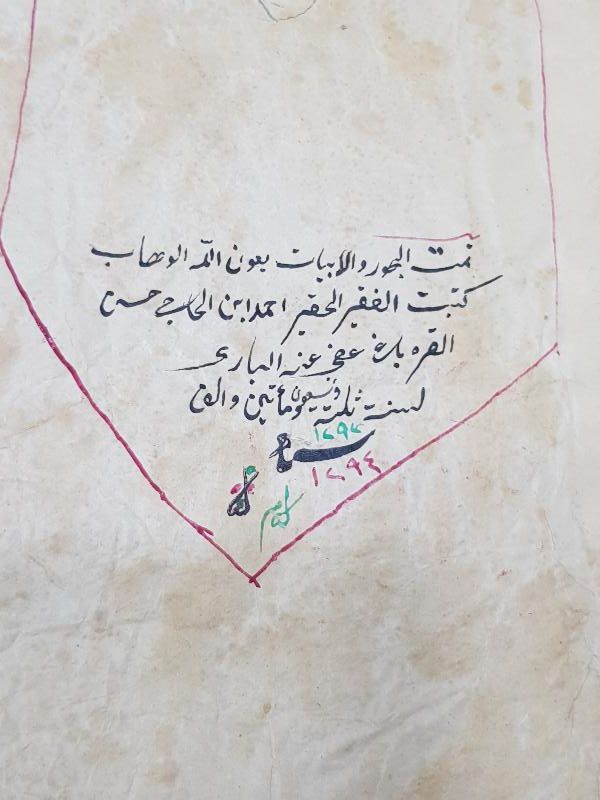 تمت البحور والابيات بعون الله الوهاب
كتبت الفقير الحقير احمد ابن الحاجى حسن
القره باغى عفى عنه البارى
لسنت ثلثة وتسعون ومأتين والف
١٢٩٣
١٢٩٤